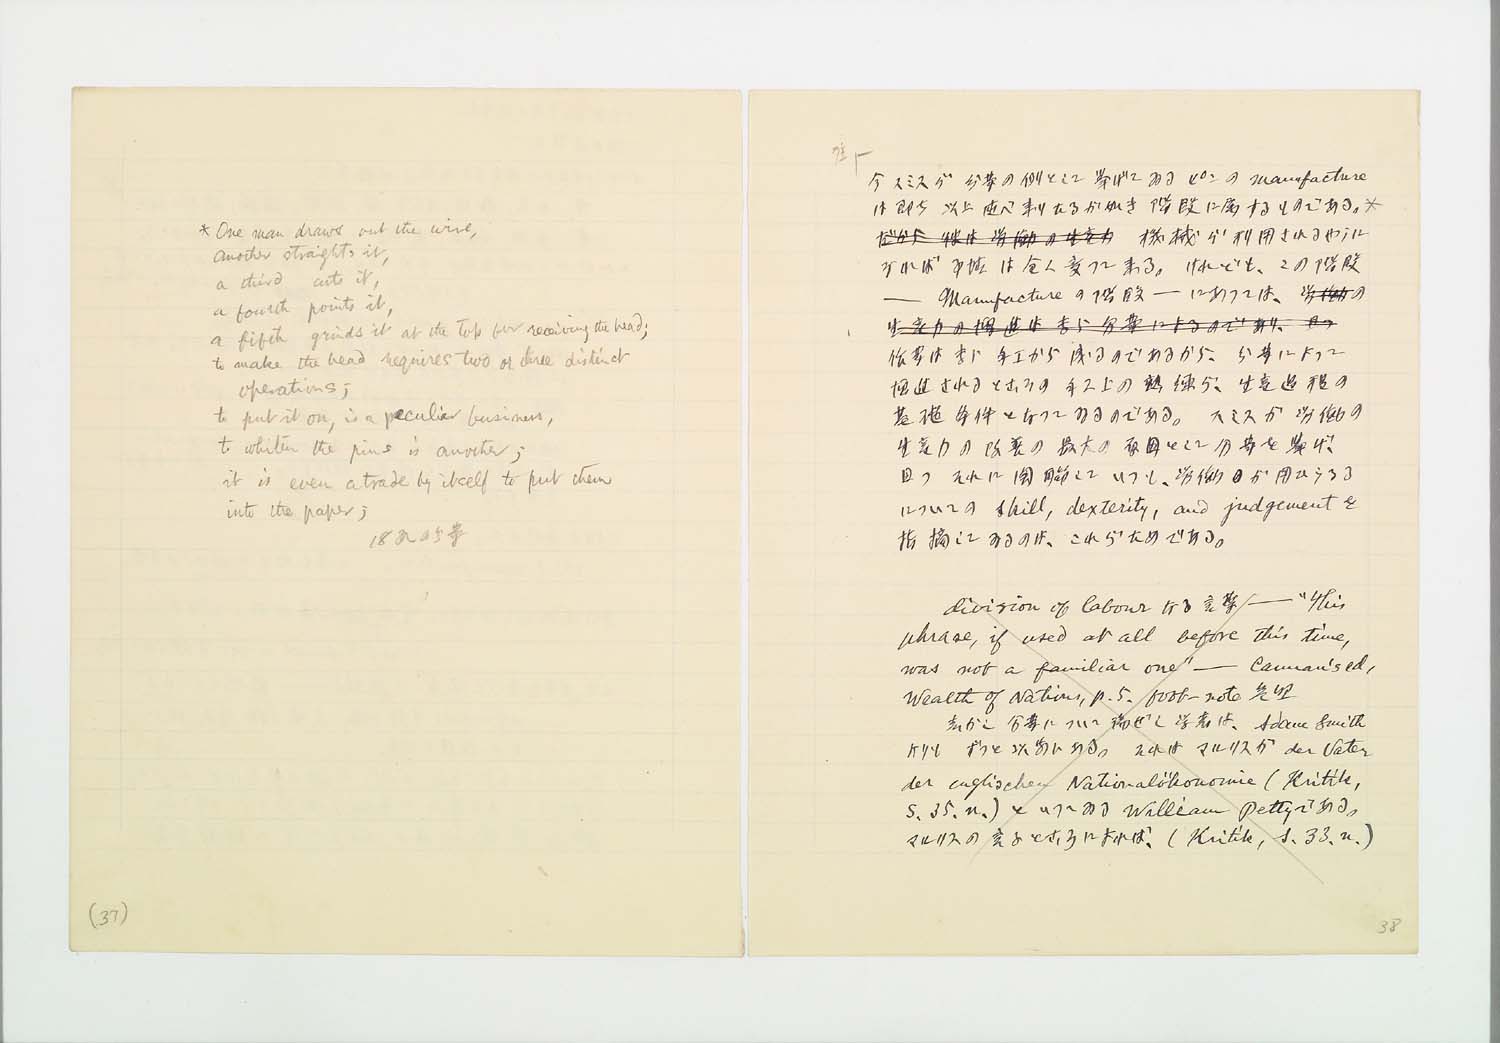 * One man draws out the wire,
another straights it,
a third cuts it,
a fourth points it,
a fifth grinds it at the top for receiving the head;
to make the head requires two or three distinct
operations;
to put it on, is a peculiar business,
to whiten the pins is another;
it is even a trade by itself to put them
into the paper;
18 の分業
(37)
今スミスが分業の例として挙げてゐるピンの manufacture
は即ち以上述べ来りたるが如き階段に属するものである。*
だから 彼は 労働の生産力 機械が利用されるやうに
なれば 事情は全く変つて来る。けれども、この階段
— Manufacture の階段 — にあつては、労働の
生産力の増進は主に分業によるのであり、且つ
作業は主に手工から成るのであるから、分業によつて
増進されるところの手工上の熟練が、生産過程の
基礎条件となつてゐるのである。スミスが労働の
生産力の改善の最大の原因として分業を挙げ、
且つそれに関聯していつも、労働が用ひらるる
についての skill, dexterity, and judgement を
指摘してゐるのは、これがためである。
division of labour なる言葉 — "This
phrase, if used at all before this time,
was not a familiar one" — Cannan's ed,
Wealth of Nations, p. 5. foot-note 参照
しかし分業について論ぜし学者は、Adam Smith
よりもずつと以前にある。それはマルクスが der Vater
der englischen Nationalökonomie (Kritik,
S. 35. n.) といつてゐる William Petty である。
マルクスの言ふところによれば、(Kritik, S. 33. n.)
38